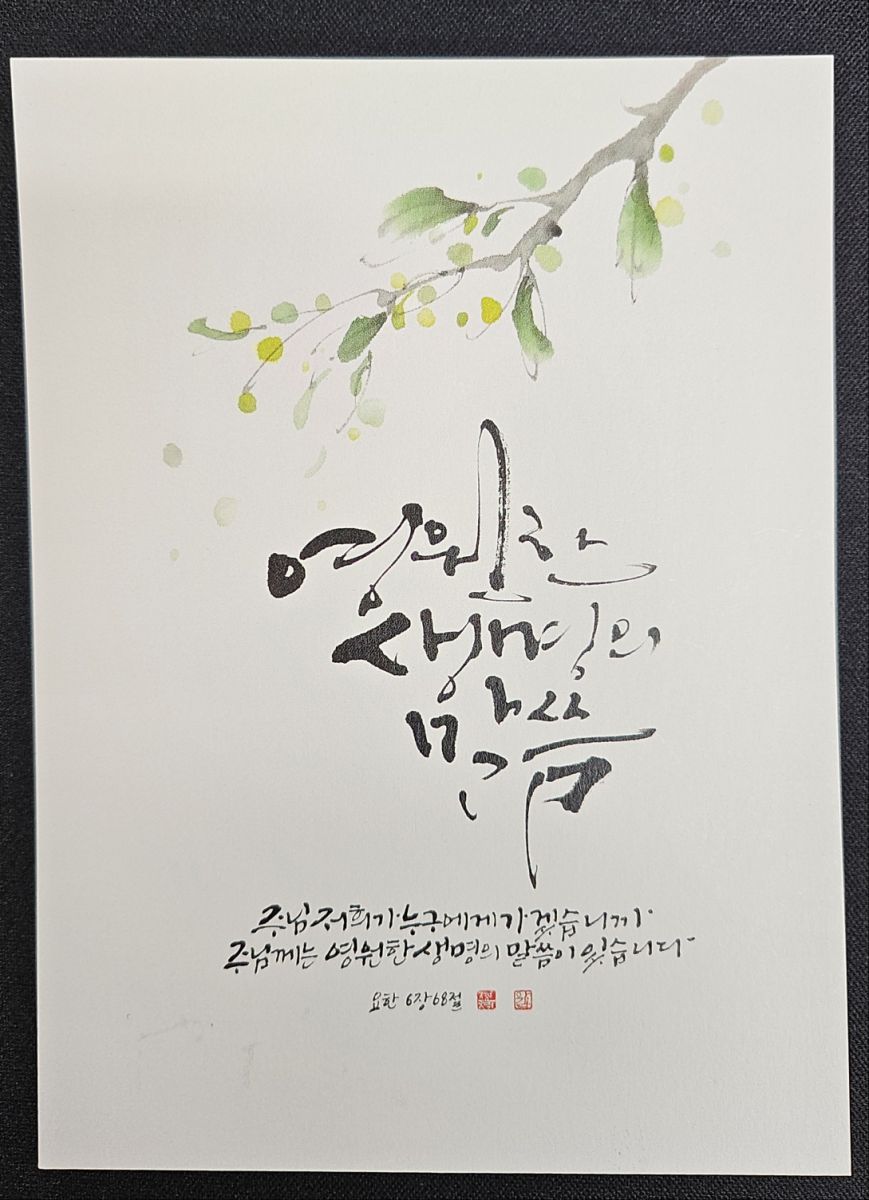 영원한
생명의
말씀
주님 저희가 누구에게 가겠습니까
주님께는 영원한 생명의 말씀이 있습니다
요한 6장 68절